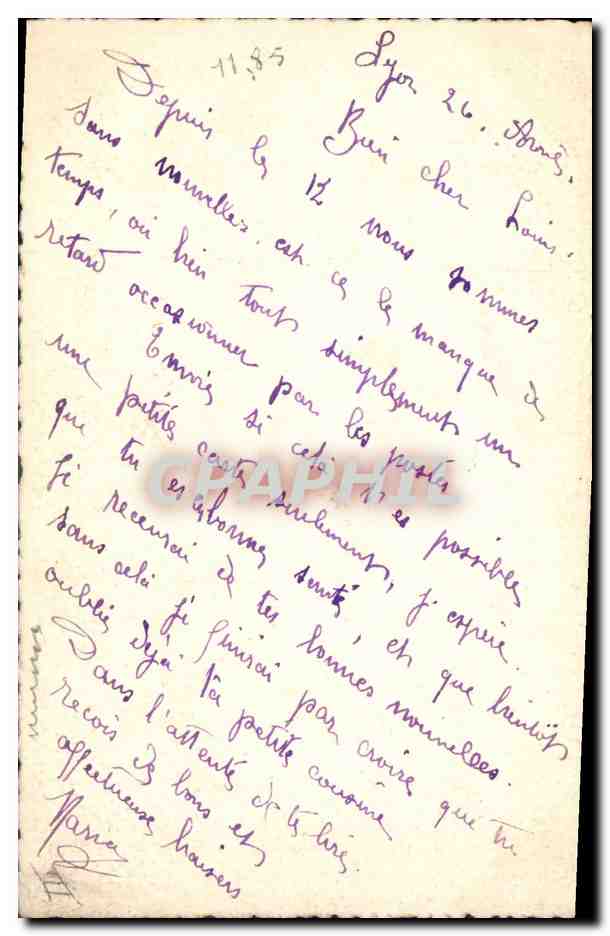 1185
Lyon 26
Bien cher Louis.
Depuis le 12 nous sommes
sans nouvelles. est ce le manque de
temps, où bien tout simplement un
retard occasionner par les postes
Envoies si cela t'es possibles
une petite carte seulement, j'espère
que tu es bonne santé, et que bientôt
je recevrai de tes bonnes nouvelles.
sans cela je finirai par croire que tu
oublies déjà ta petite cousine
Dans l'attente de te lire.
recois de bons et
affectueux baisers
CPAPHIL